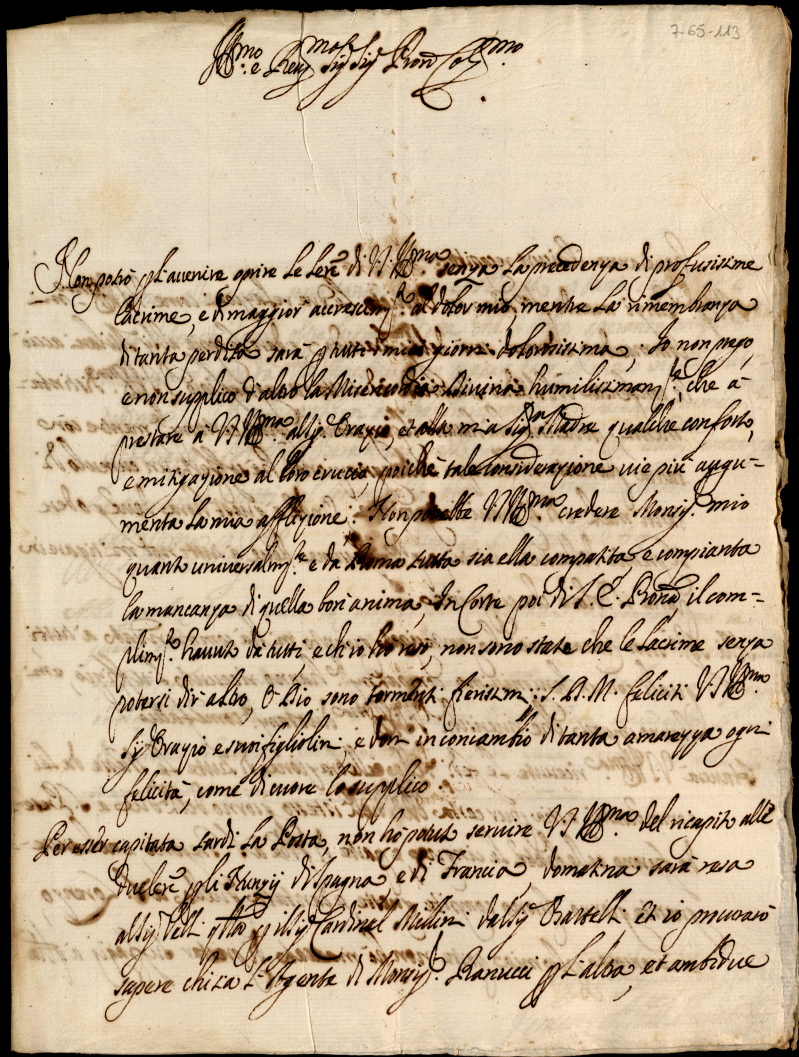 7-65-113
Ill.mo e Rev.mo Sig.r Sig.r Pron Col.mo
Non potrò p l'avvenire aprire le lere di V.S. Ill.ma senza la precedenza di profusissime
lacrime, e di maggior accrescim.to al dolor mio, mentre la rimembranza
di tanta perdita sarà p tutti i miei giorni dolorosissima, Io non prego,
e non supplico d'altro la Misericordia Divina humilissimam.te, che à
prestare à V.S. Ill.ma al Sig. Orazio, et alla mia Sig.ra Madre qualche conforto,
e mitigazione al loro cruccio, poiche tale considerazione vie più augu-
menta la mia afflizione. Non potrebbe V.S. Ill.ma credere Monsig.r mio
quanto universalm.te e da Roma tutta sia ella compatita, e compianta
la mancanza di quella bon'anima, In Corte poi di S. E. Prona, il com-
plim.to havuto da tutti, e ch'io hò reso, non sono state che le lacrime senza
potersi dir altro, ò Dio sono tormenti fierissmi; S. D. M. feliciti V.S. Ill.ma
Sig. Orazio e suoi figliolini, e doni in concambio di tanta amarezza ogni
felicità, come di cuore lo supplico
Per esser capitata tardi la Posta, non hò potuto servire V.S. Ill.ma del ricapito alle
due lere p li Nunzij di Spagna, e di Francia, domatina sarà resa
al Sig. p il Sig. Cardinal Millini dal Sig. Battelli, et io procurarò
sapere chi sia l'Agente di Monsig.r Ranucci p l'altra, et ambidue